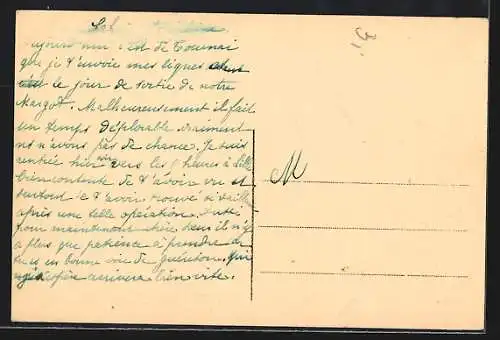 aujourd'hui c'est de Tournai
que je t'envoie mes lignes
le jour de sortie de notre
Margot. Malheureusement il fait
un temps déplorable vraiment
ns n'avons pas de chance. Je suis
rentrée hier vers les heures à Lille
bien contente de t'avoir vu et
surtout de t'avoir trouvé si vaillante
après une telle opération.
pour maintenant chère il n'y
a plus que patience à prendre
tu es en bonne voie de guérison.
arrivera bien vite.
M
3.